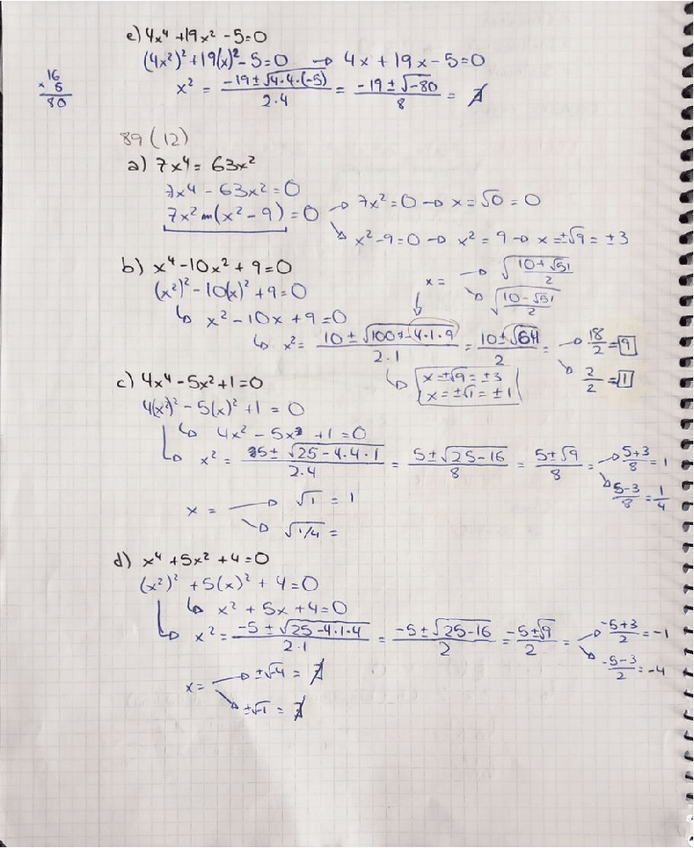 e) 4x⁴ + 19x² - 5 = 0
(4x²)² + 19(x)² - 5 = 0 → 4x + 19x - 5 = 0
x² = (-19 ± √4·4·(-5))/2·4 = (-19 ± √-80)/8 = ∄
16
× 5
80
89 (12)
a) 7x⁴ = 63x²
7x⁴ - 63x² = 0
7x² (x² - 9) = 0 → 7x² = 0 → x = √0 = 0
↘ x² - 9 = 0 → x² = 9 → x = ±√9 = ±3
b) x⁴ - 10x² + 9 = 0
x = → √(10 + √51)/2
↘ √(10 - √51)/2
(x²)² - 10(x)² + 9 = 0
↳ x² - 10x + 9 = 0
↳ x² = (10 ± √100 - 4·1·9)/2·1 = (10 ± √64)/2 = → 18/2 = 9
↘ 2/2 = 1
↳ x = ±√9 = ±3
x = ±√1 = ±1
c) 4x⁴ - 5x² + 1 = 0
4(x²)² - 5(x)² + 1 = 0
↳ 4x² - 5x + 1 = 0
↳ x² = (5 ± √25 - 4·4·1)/2·4 = (5 ± √25 - 16)/8 = (5 ± √9)/8 = → (5+3)/8 = 1
↘ (5-3)/8 = 1/4
x = → √1 = 1
↘ √1/4 =
d) x⁴ + 5x² + 4 = 0
(x²)² + 5(x)² + 4 = 0
↳ x² + 5x + 4 = 0
↳ x² = (-5 ± √25 - 4·1·4)/2·1 = (-5 ± √25 - 16)/2 = (-5 ± √9)/2 = → (-5+3)/2 = -1
↘ (-5-3)/2 = -4
x = → ±√-4 = ∄
↘ ±√-1 = ∄